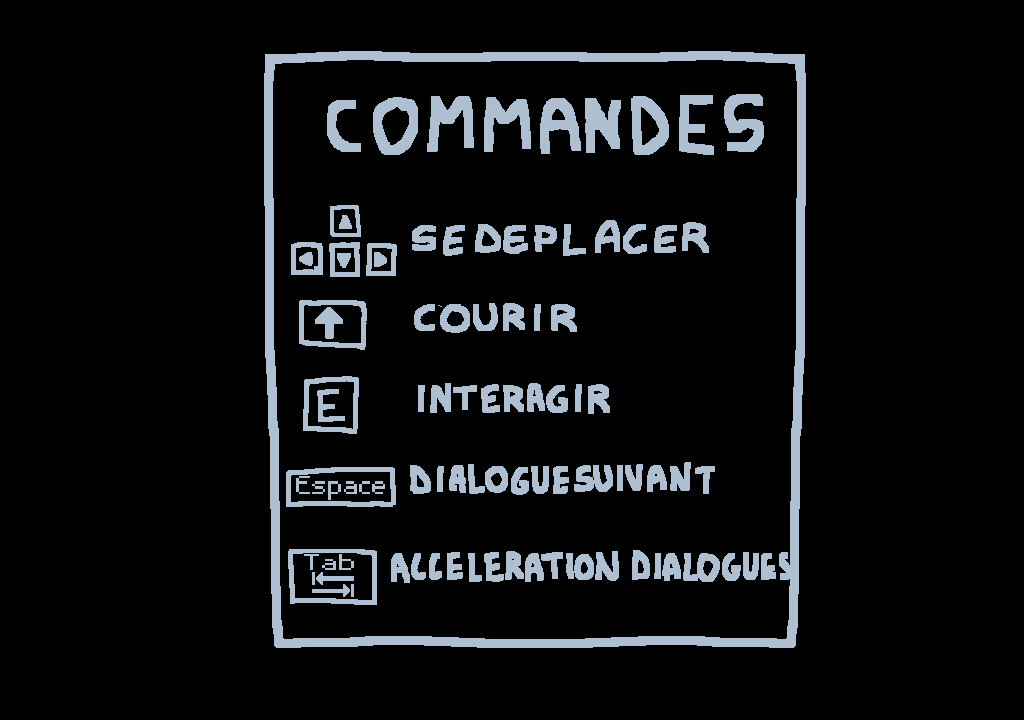 COMMANDES
SE DEPLACER
COURIR
E INTERAGIR
Espace DIALOGUE SUIVANT
Tab ACCELERATION DIALOGUES